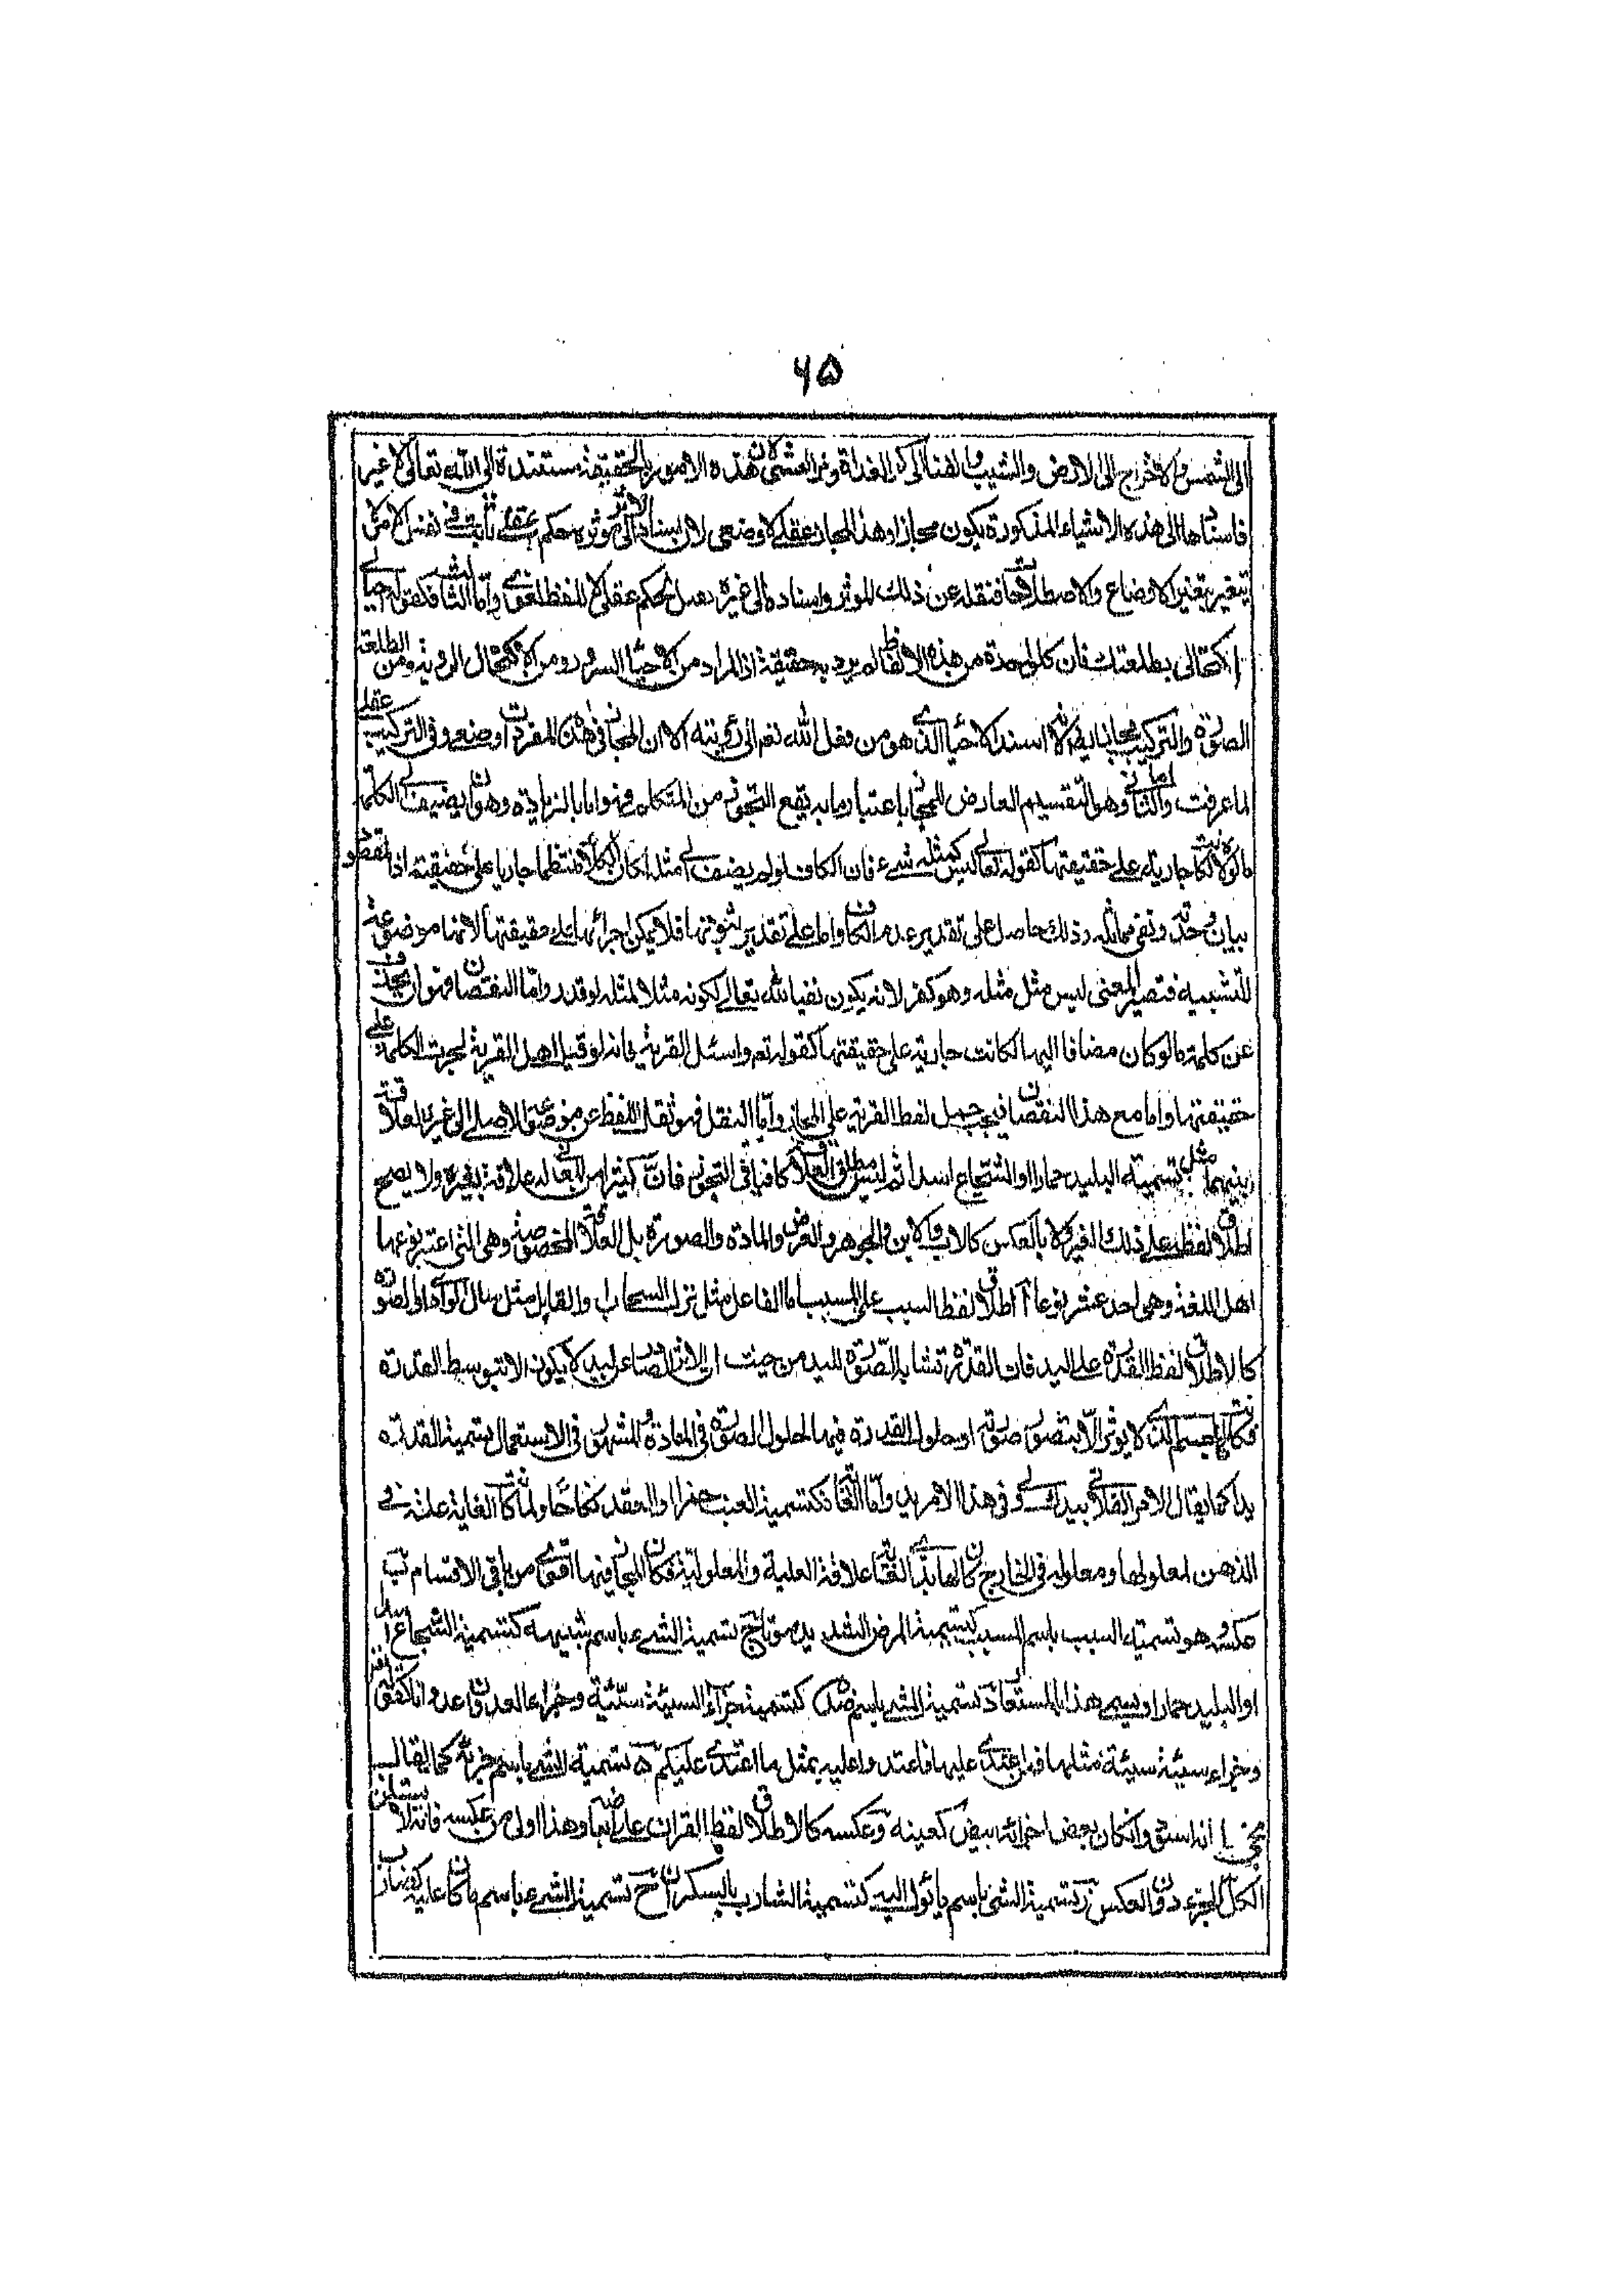 ۶۵
الى الشمس والاخراج الى الارض والشيب والفناء الى كر الغداة ومر العشى لان هذه الامور بالحقيقة مستندة الى الله تعالى لا غير
فاسنادها الى هذه الاشياء المذكورة يكون مجازا وهذا المجاز عقلى لا وضعى لان اسناد الاثر الى موثره حكم عقلى ثابت فى نفس الامر لا
يتغير بتغير الاوضاع والاصطلاحات فنقله عن ذلك الموثر واسناده الى غيره نقل لحكم عقلى لا للفظ لغوى واما الثالث فكقوله احيانى
اكتحالى بطلعتك فان كل واحدة من هذه الالفاظ لم يرد به حقيقة اذ المراد من الاحياء السرور ومن الاكتحال الروية ومن الطلعة
الصورة والتركيب مجاز ايضا لانه اسند الاحياء الذى هو من فعل الله تعم الى رؤيته الا ان المجاز فى هذه المفردات وضعى وفى التركيب عقلى
لما عرفت واما الثانى وهو التقسيم العارض للمجاز باعتبار ما به يقع التجوز من المتكلم فهو اما بالزيادة وهو ان يضيف الى الكلمة
ما لولاه لكانت جارية على حقيقتها كقوله تعالى ليس كمثله شىء فان الكاف لو لم يضف الى مثله لكان الكلام منتظما جاريا على حقيقته اذ المقصود
بيان وحدته ونفى مماثله وذلك حاصل على تقدير عدم الكاف واما على تقدير ثبوتها فلا يمكن اجرائها على حقيقتها لانها موضوعة
للتشبيه فتصير المعنى ليس مثل مثله وهو كفر لانه يكون نفيا لله تعالى لكونه مثلا لمثله لو قدر واما النقصان فهو ان يحذف
عن كلمة ما لو كان مضافا اليها لكانت جارية على حقيقتها كقوله تعم واسئل القرية فانه لو قيل اهل القرية لجرت الكلمة على
حقيقتها واما مع هذا النقصان فيجب حمل لفظ القرية على المجاز واما النقل فهو نقل اللفظ عن موضوعه الاصلى الى غيره لعلاقة
بينهما مثل تسمية البليد حمارا والشجاع اسدا ثم ليس مطلق العلاقة كافيا فى التجوز فان كثيرا من المعانى له علاقة بغيره ولا يصح
اطلاق لفظه على ذلك الغير ولا بالعكس كالاب والابن والجوهر والعرض والمادة والصورة بل العلاقة المخصوصة وهى التى اعتبر نوعها
اهل اللغة وهى احد عشر نوعا آ اطلاق لفظ السبب على المسبب اما الفاعل مثل نزل السحاب والقابل مثل سال الوادى او الصورة
كالاطلاق لفظ القدرة على اليد فان القدرة تشابه الصورة لليد من حيث ان الاثر الصادر عن اليد لا يكون الا بتوسط القدرة
فكانت كالجسم الذى لا يوثر الا بتصور صورته او حلول القدرة فيها كحلول الصورة فى المادة والمشهور فى الاستعمال تسمية القدرة
يدا كما يقال الامر الفلانى بيدك وفى هذا الامر يد واما الغاية فكتسمية العنب خمرا والعقد نكاحا ولما كانت الغاية علة فى
الذهن لمعلولها ومعلوله فى الخارج كان لها بذى الغاية علاقة العلية والمعلولية فكان المجاز فيها اقوى من باقى الاقسام ب
عكسه وهو تسمية السبب باسم المسبب كتسمية المرض الشديد موتا ج تسمية الشىء باسم شبيهه كتسمية الشجاع اسدا
او البليد حمارا ويسمى هذا بالمستعار د تسمية الشىء باسم ضده كتسمية جزاء السيئة سيئة وجزاء العدوان عدوانا كقوله تعم
وجزاء سيئة سيئة مثلها فمن اعتدى عليكم فاعتدوا عليه بمثل ما اعتدى عليكم ه تسمية الشىء باسم جزئه كما يقال
انه اسود وان كان بعض اجزائه ابيض كعينه و عكسه كالاطلاق لفظ القران على ابعاضه وهذا اولى من عكسه فانه لاستلزم
الكل الجزء دون العكس ز تسمية الشىء باسم ما يؤل اليه كتسمية الشارب بالسكران ح تسمية الشىء باسم ما كان عليه كضارب